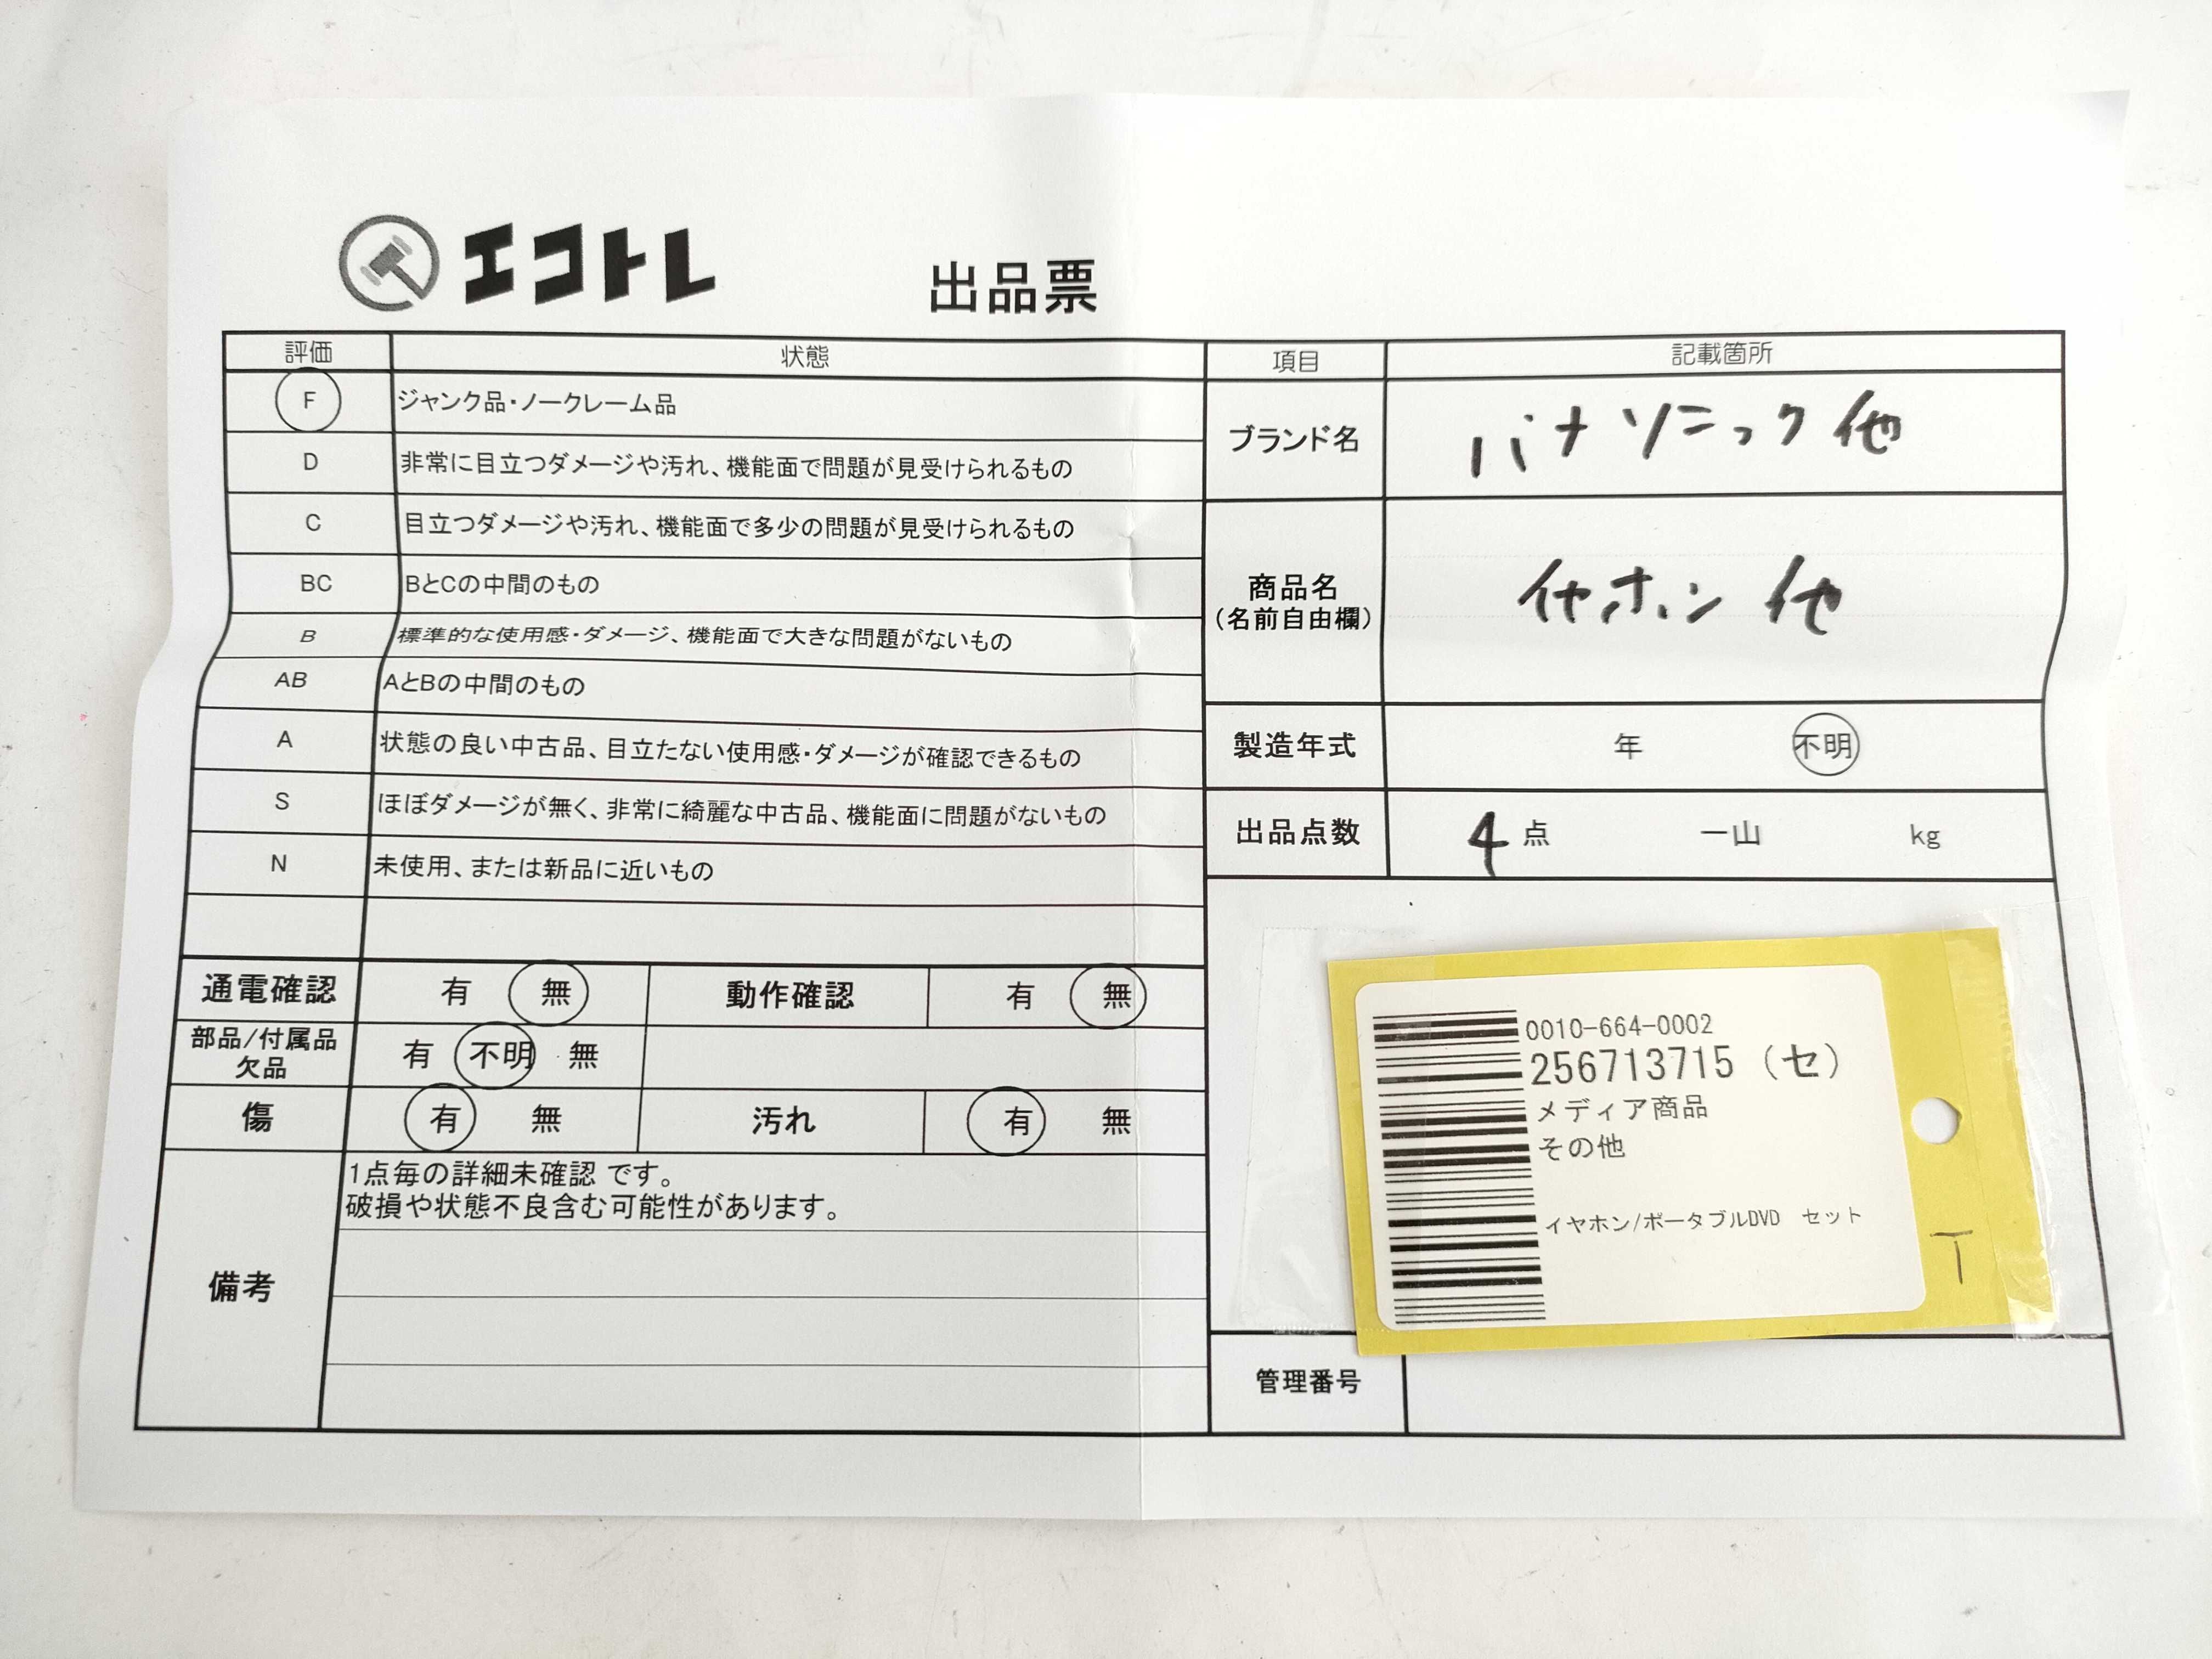 エコトレ
出品票
評価 状態
F ジャンク品・ノークレーム品
D 非常に目立つダメージや汚れ、機能面で問題が見受けられるもの
C 目立つダメージや汚れ、機能面で多少の問題が見受けられるもの
BC BとCの中間のもの
B 標準的な使用感・ダメージ、機能面で大きな問題がないもの
AB AとBの中間のもの
A 状態の良い中古品、目立たない使用感・ダメージが確認できるもの
S ほぼダメージが無く、非常に綺麗な中古品、機能面に問題がないもの
N 未使用、または新品に近いもの
通電確認 有 無 動作確認 有 無
部品/付属品
欠品 有 不明 無
傷 有 無 汚れ 有 無
備考
1点毎の詳細未確認 です。
破損や状態不良含む可能性があります。
項目 記載箇所
ブランド名 パナソニック他
商品名
(名前自由欄) イヤホン 他
製造年式 年 不明
出品点数 4点 一山 kg
0010-664-0002
256713715 (セ)
メディア商品
その他
イヤホン/ポータブルDVD セット
T
管理番号